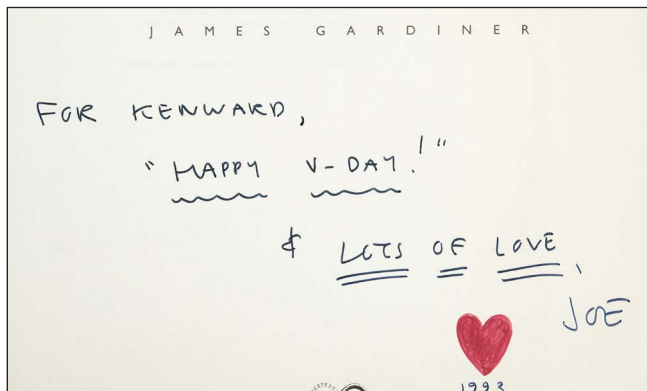 JAMES GARDINER
FOR KENWARD,
"HAPPY V-DAY!"
& LOTS OF LOVE,
JOE
1993